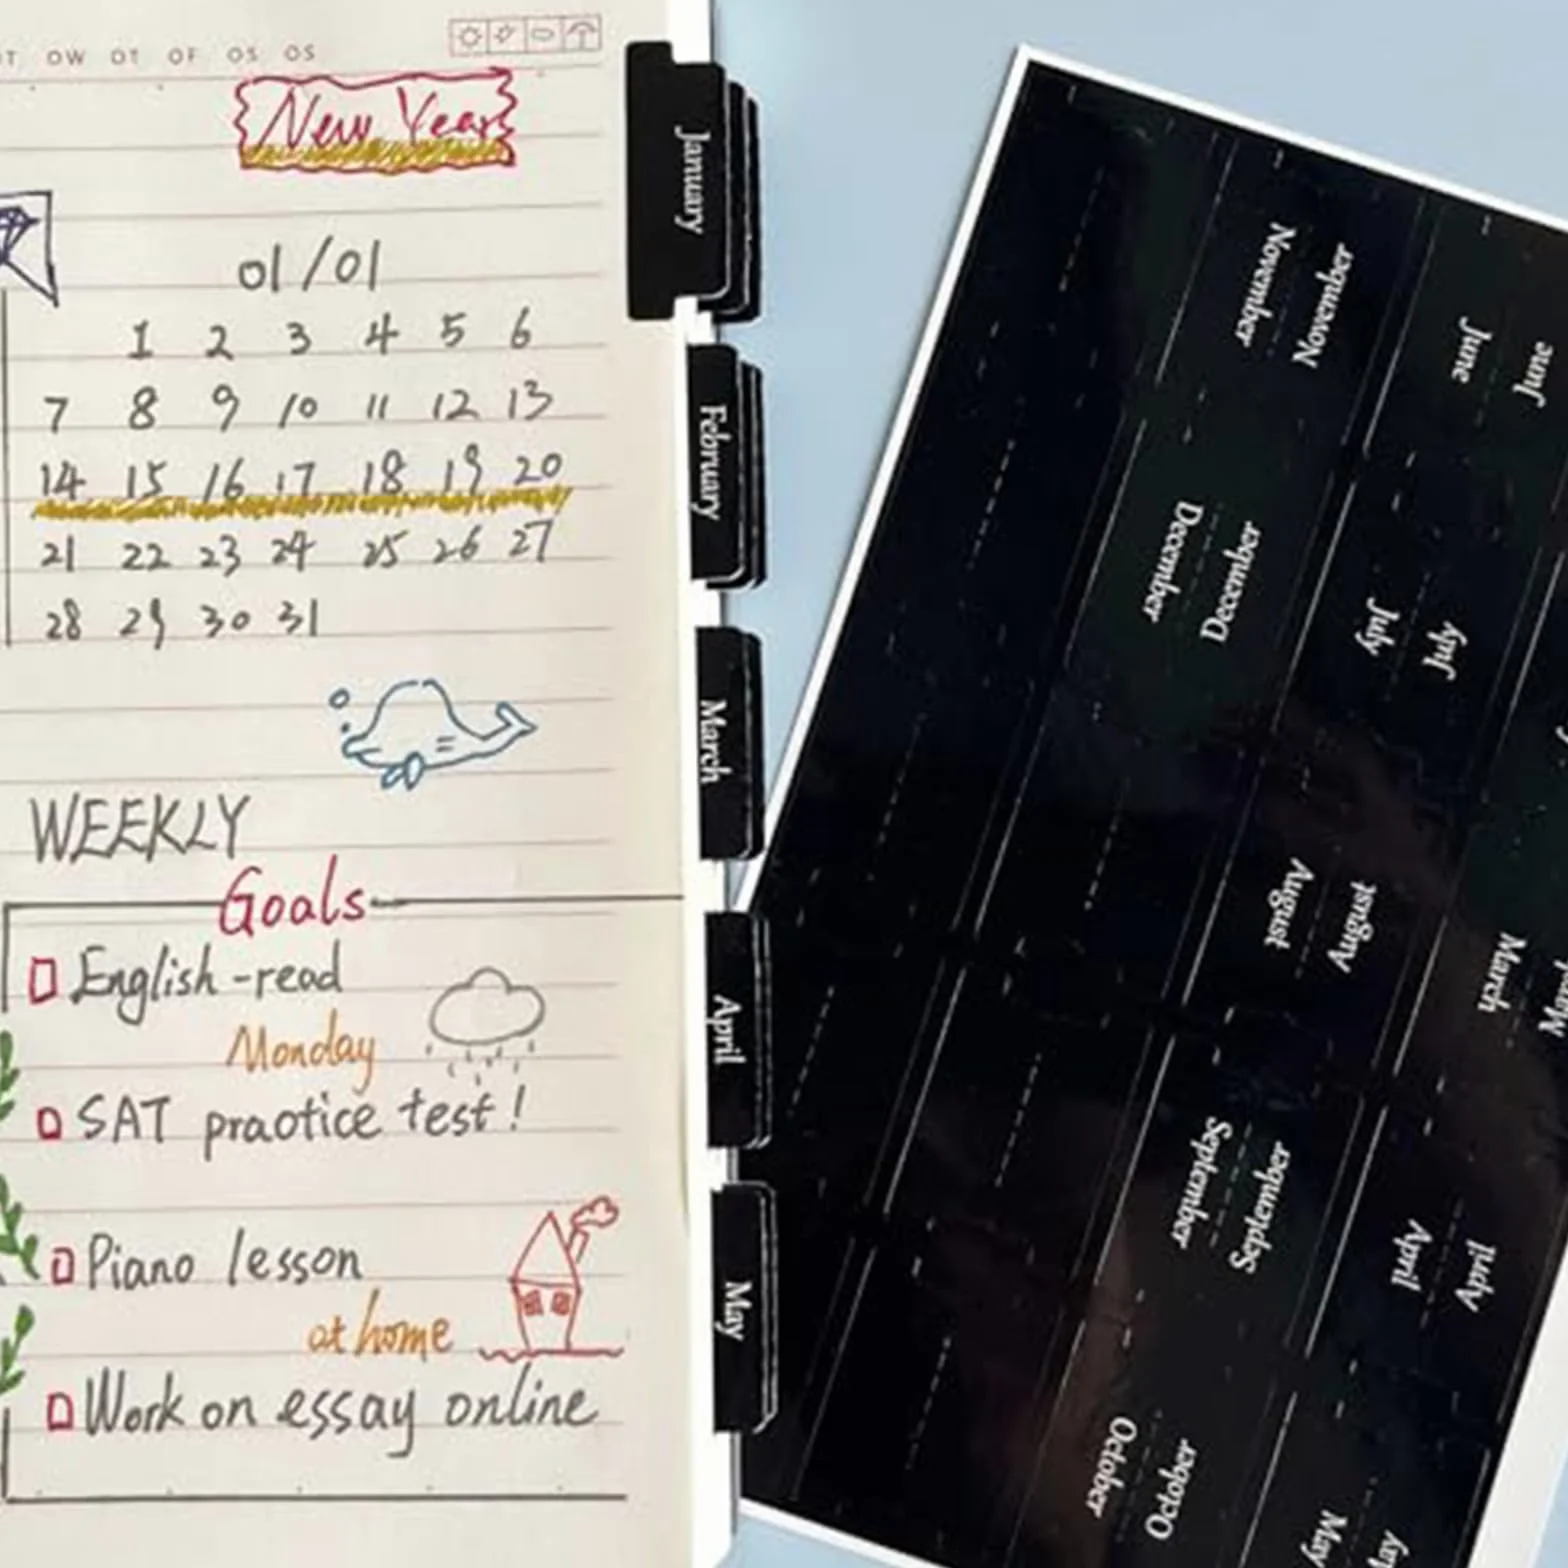 OW OT OF OS OS
New Year
01/01
1 2 3 4 5 6
7 8 9 10 11 12 13
14 15 16 17 18 19 20
21 22 23 24 25 26 27
28 29 30 31
WEEKLY
Goals
English-read
Monday
SAT praotice test!
Piano lesson
at home
Work on essay online
January
February
March
April
May
November
November
June
June
December
December
July
July
August
August
March
September
September
April
April
October
October
May